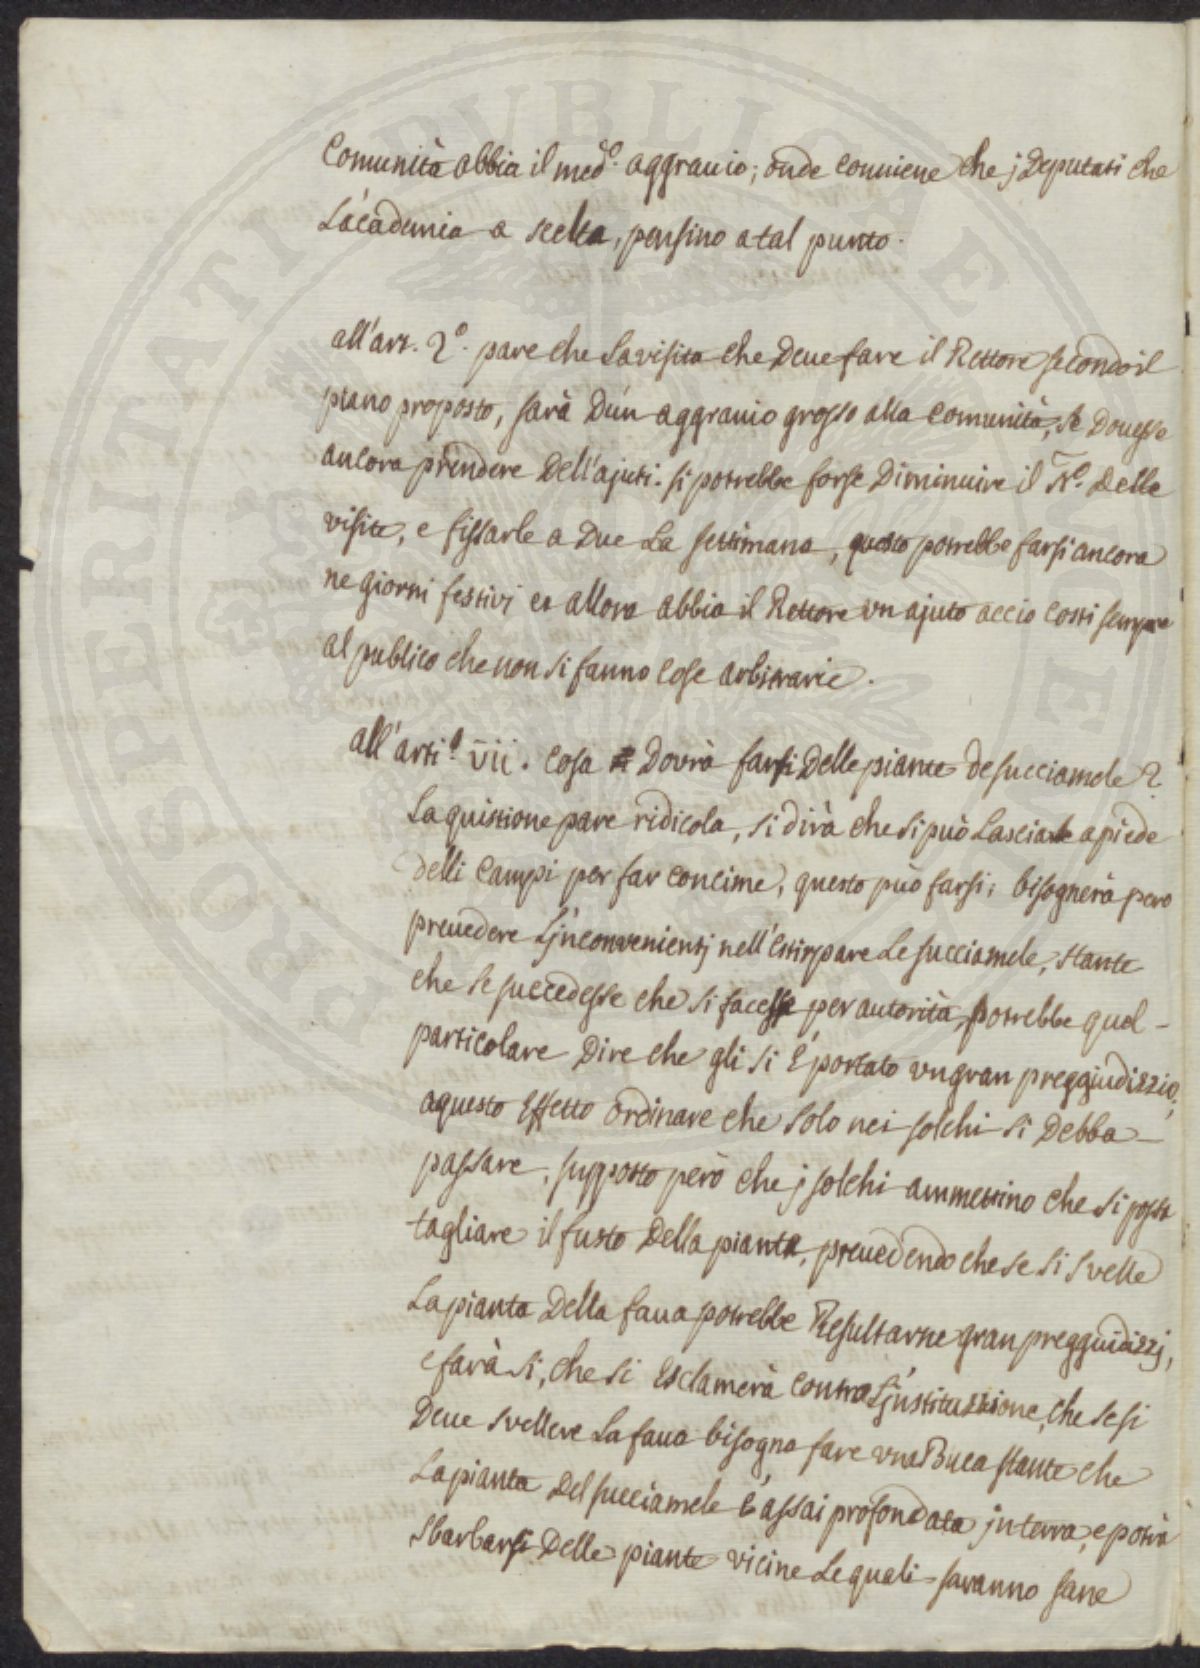 Comunità abbia il med.º aggrauio; onde conuiene che j Deputati che
L'academia a scelta, pensino a tal punto.
all'art. 2º. pare che La visita che Deue fare il Rettore secondo il
piano proposto, sarà D'un aggrauio grosso alla comunità, se Douesse
ancora prendere Dell'ajuti. si potrebbe forse Diminuire il N.º Delle
visite, e fissarle a Due La settimana, questo potrebbe farsi ancora
ne giorni festivi et allora abbia il Rettore un ajuto accio costi sempre
al publico che non si fanno cose arbitrarie.
all'arti.º vii. cosa Dovrà farsi Delle piante de succiamele?
La quistione pare ridicola, si dirà che si può Lasciarle a piede
delli Campi per far concime, questo può farsi; bisognerà pero
preuedere L'jnconvenientj nell'estirpare Le succiamele, stante
che se succedesse che si facesse per autorità, potrebbe quel-
particolare Dire che gli si è portato un gran preggiudizzio,
a questo Effetto ordinare che solo nei solchi si Debba
passare, supposto però che j solchi ammettino che si possa
tagliare il fusto Della pianta, preuedendo che se si svelle
La pianta Della faua potrebbe Resultarne gran preggiudizzj,
e farà si, che si Esclamerà contro L'jnstituzzione, che se si
Deue svellere La faua bisogna fare una Buca stante che
La pianta Del succiamele è assai profondata jn terra, e potrà
sbarbarsi Delle piante vicine Le quali saranno sane